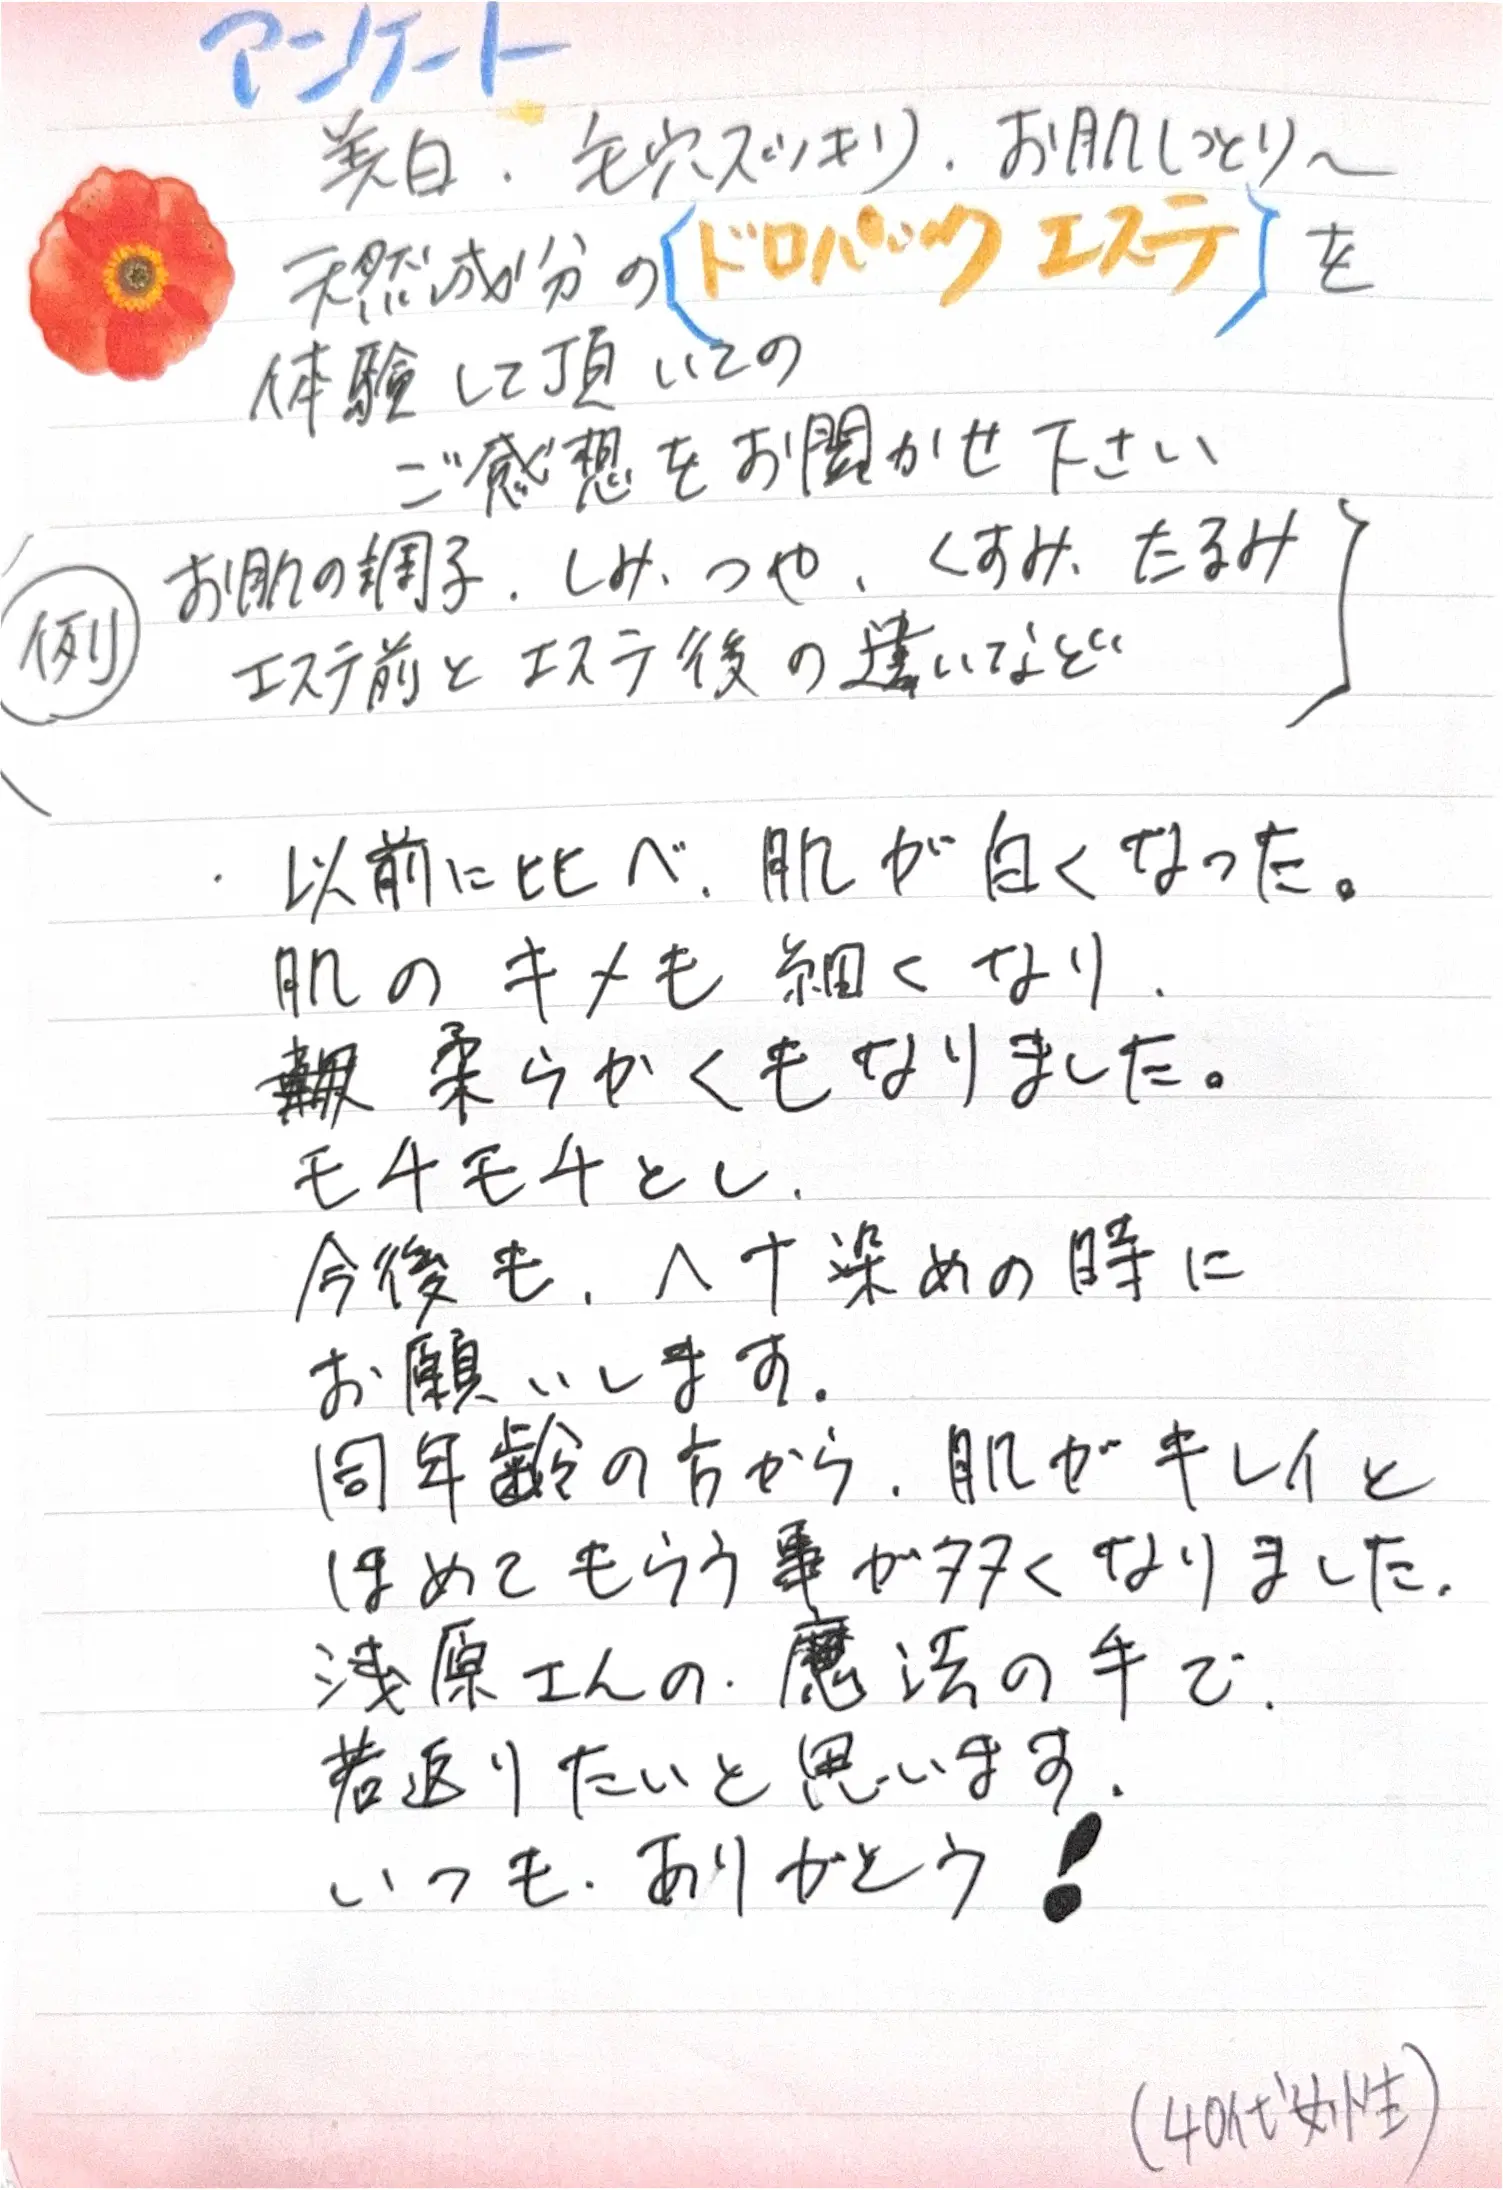 アンケート
美白．毛穴スッキリ．お肌しっとり〜
天然成分の(ドロパック エステ)を
体験して頂いての
ご感想をお聞かせ下さい
例
お肌の調子．しみ、つや、くすみ、たるみ
エステ前とエステ後の違いなど
・以前に比べ、肌が白くなった。
肌のキメも細くなり、
柔らかくもなりました。
モチモチとし、
今後も、ヘナ染めの時に
お願いします。
同年齢の方から、肌がキレイと
ほめてもらう事が多くなりました。
浅原さんの．魔法の手で、
若返りたいと思います。
いつも．ありがとう！
(40代女性)